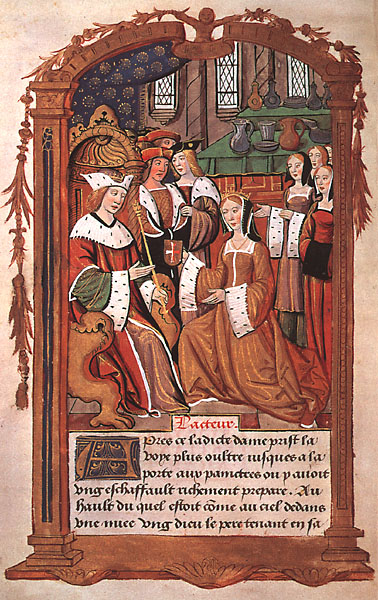 L'acteur.
Apres ce ladicte dame prist la
voye plus oultre iusques a la
porte aux painctres ou y auoit
vng eschaffault richement prepare. Au
hault du quel estoit cõme au ciel dedans
vne nuee vng dieu le pere tenant en sa